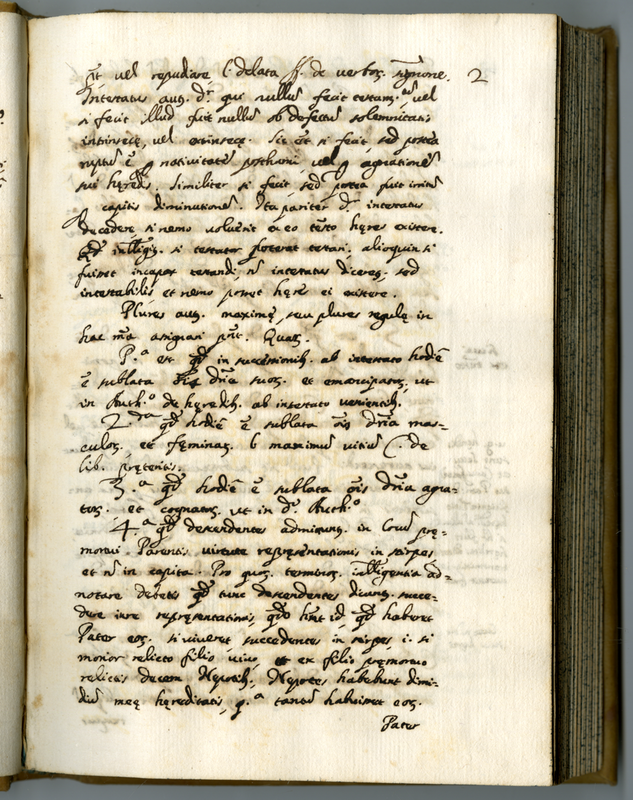 p̃nt vel repudiare l. delata ff. de verbor. signione. 2
Intestatus aut. dr. qui nullum fecit testam.tum vel
si fecit illud fuit nullum ob defectum solemnitatis
intrinsecę, vel extrinsecę. Sic est si fecit, sed postea
ruptum ẽ ꝑ nativitatem posthumi, vel ꝑ agnationem
sui hęredis. Similiter si fecit sed postea fuit irritum
capitis diminutionem. Ita pariter dr. intestatus
decedere, si nemo voluerit ex eo testo hęres existere.
Qđ intlligis. si testator poterat testari, alioquin si
fuisset incapax testandi ñ intestatus diceret, sed
intestabilis et nemo posset hęres ei existere.
Plures aut. maximę, seu plures regulę in
hac mã assignari pñt. Quar.
P.a est qđ in successionib. ab intestato hodiẽ
ẽ sublata oĩs driã suor. et emancipator, ut
in Auth.o de hęredib. ab intestato venientib.
2.da qđ hodiẽ ẽ sublata oĩs driã mas=
culor. et fęminar. b maximum vitium C. de
lib. pręteritis.
3.a qđ hodiẽ ẽ sublata oĩs driã agna=
tor. et cognator. ut in d. Auth.o
4.a qđ descendentes admittunt. in locum prę=
mortui Parentis virtute repręsentationis in stirpes
et ñ in capita. Pro quor. terminor. intlligentia ad=
notare debetis qđ tunc descendentes dicunt. succe=
dere iure repręsentationis, qđo hñt id qđ haberet
Pater eor. si viveret succedentes in stirpes i. si
morior relicto filio vivo, et ex filio pręmortuo
relictis decem Nepotib. Nepotes habebunt dimi=
dium meę hęreditatis, q.a tantum habuisset eor.
Pater